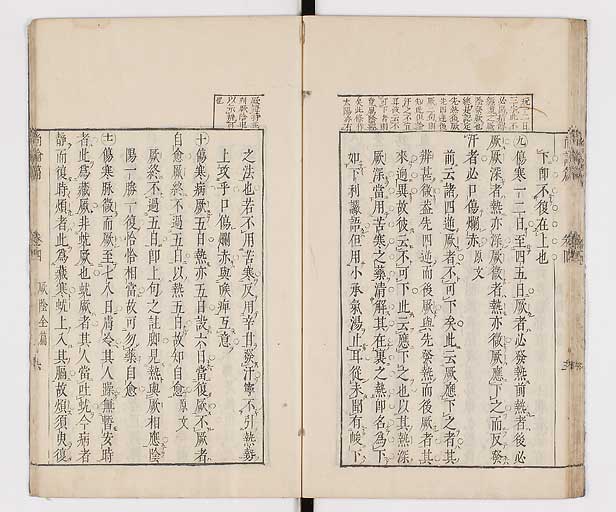 下卽不復在上也
九傷寒一二日至四五日厥者必發熱前熱者後必
厥厥深者熱亦深厥微者熱亦微厥應下之而反發
汗者必口傷爛赤原文
前云諸四逆厥者不可下矣此云厥應下之者其
辨甚微葢先四逆而後厥與先發熱而後厥者其
來逈異故彼云不可下此云應下之也以其熱深
厥深當用苦寒之藥清解其在裏之熱卽名爲下
如下利讝語但用小承氣湯止耳從未聞有峻下
之法也若不用苦寒反用辛甘發汗寧不引熱勢
上攻乎口傷爛赤與喉痺互意
十傷寒病厥五日熱亦五日設六日當復厥不厥者
自愈厥終不過五日以熱五日故知自愈原文
厥終不過五日卽上句之註脚見熱與厥相應陰
陽一勝一復恰恰相當故可勿藥自愈
傷寒脉微而厥至七八日膚冷其人躁無暫安時
者此爲藏厥非蚘厥也蚘厥者其人當吐蚘今病者
靜而復時煩者此爲藏寒蚘上入其膈故煩須臾復
尚論篇
卷四
厥陰全篇
六